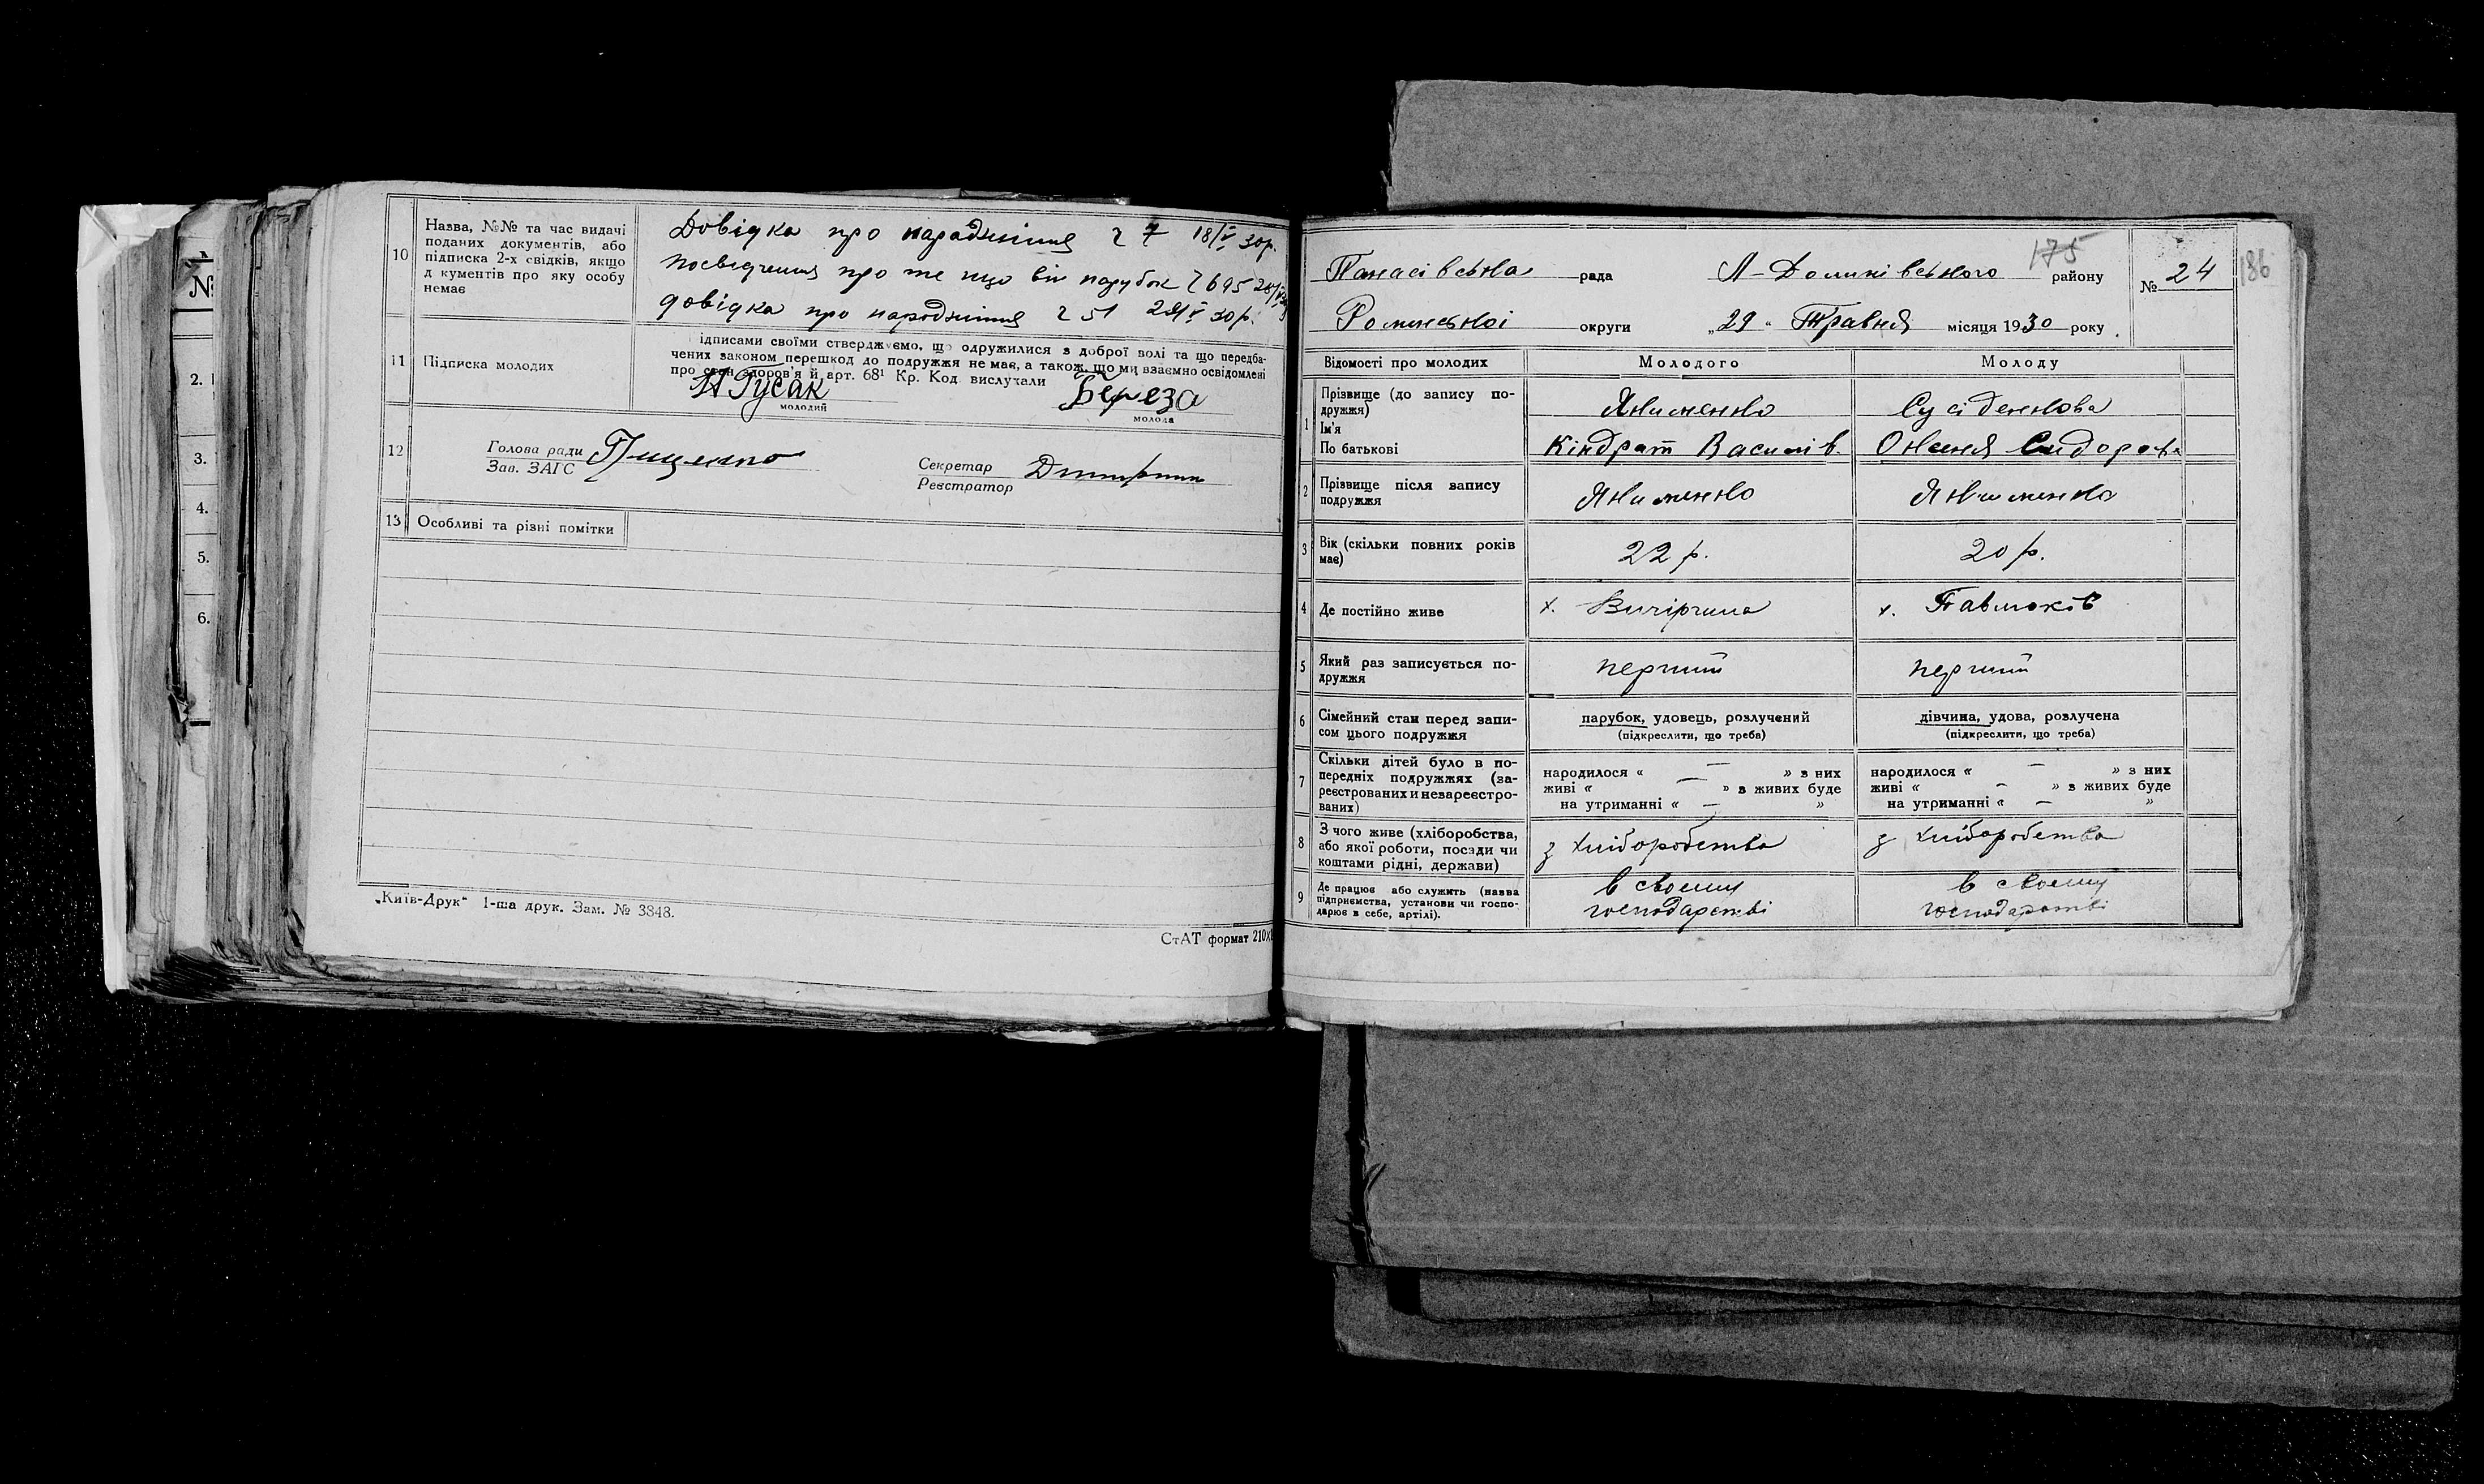 №
2.
3.
4.
5.
6.
10
Назва, №№ та час видачі
поданих документів, або
підписка 2-х свідків, якщо
д кументів про яку особу
немає
Довідка про народжіння ч 7 18/V 30р.
посвідчення про те що він парубок ч 695 28/V
довідка про народжіння ч 51 29/V 30р.
11 Підписка молодих
ідписами своїми стверджуємо, що одружилися з доброї волі та що передба-
чених законом перешкод до подружжя не має, а також, що ми взаємно освідомлені
про стан здоров'я й арт. 68¹ Кр. Код вислухали
Гусак Береза
молодий молода
12
Голова ради Пищенко
Зав. ЗАГС
Секретар Дмитрик
Реєстратор
13 Особливі та різні помітки
„Київ-Друк“ 1-ша друк. Зам. № 3848.
СтАТ формат 210х
175
186
Панасівська рада Л-Долинівського району
№ 24
Роменської округи „29“ Травня місяця 1930 року.
Відомості про молодих Молодого Молоду
1
Прізвище (до запису по-
дружжя)
Ім'я
По батькові
Якименко
Кіндрат Василів.
Сусіденкова
Оксеня Сидорова
2
Прізвище після запису
подружжя
Якименко
Якименко
3
Вік (скільки повних років
має)
22 р.
20 р.
4 Де постійно живе
х. Вичірчина
х. Павлюків
5
Який раз записується по-
дружжя
перший
перший
6
Сімейний стан перед запи-
сом цього подружжя
парубок, удовець, розлучений
(підкреслити, що треба)
дівчина, удова, розлучена
(підкреслити, що треба)
7
Скільки дітей було в по-
передніх подружжях (за-
реєстрованих и незареєстро-
ваних)
народилося « — » з них
живі « — » в живих буде
на утриманні « — »
народилося « — » з них
живі « — » в живих буде
на утриманні « — »
8
З чого живе (хліборобства,
або якої роботи, посади чи
коштами рідні, держави)
з хліборобства
з хліборобства
9
Де працює або служить (назва
підприємства, установи чи госпо-
дарює в себе, артілі).
в своєму
господарстві
в своєму
господарстві